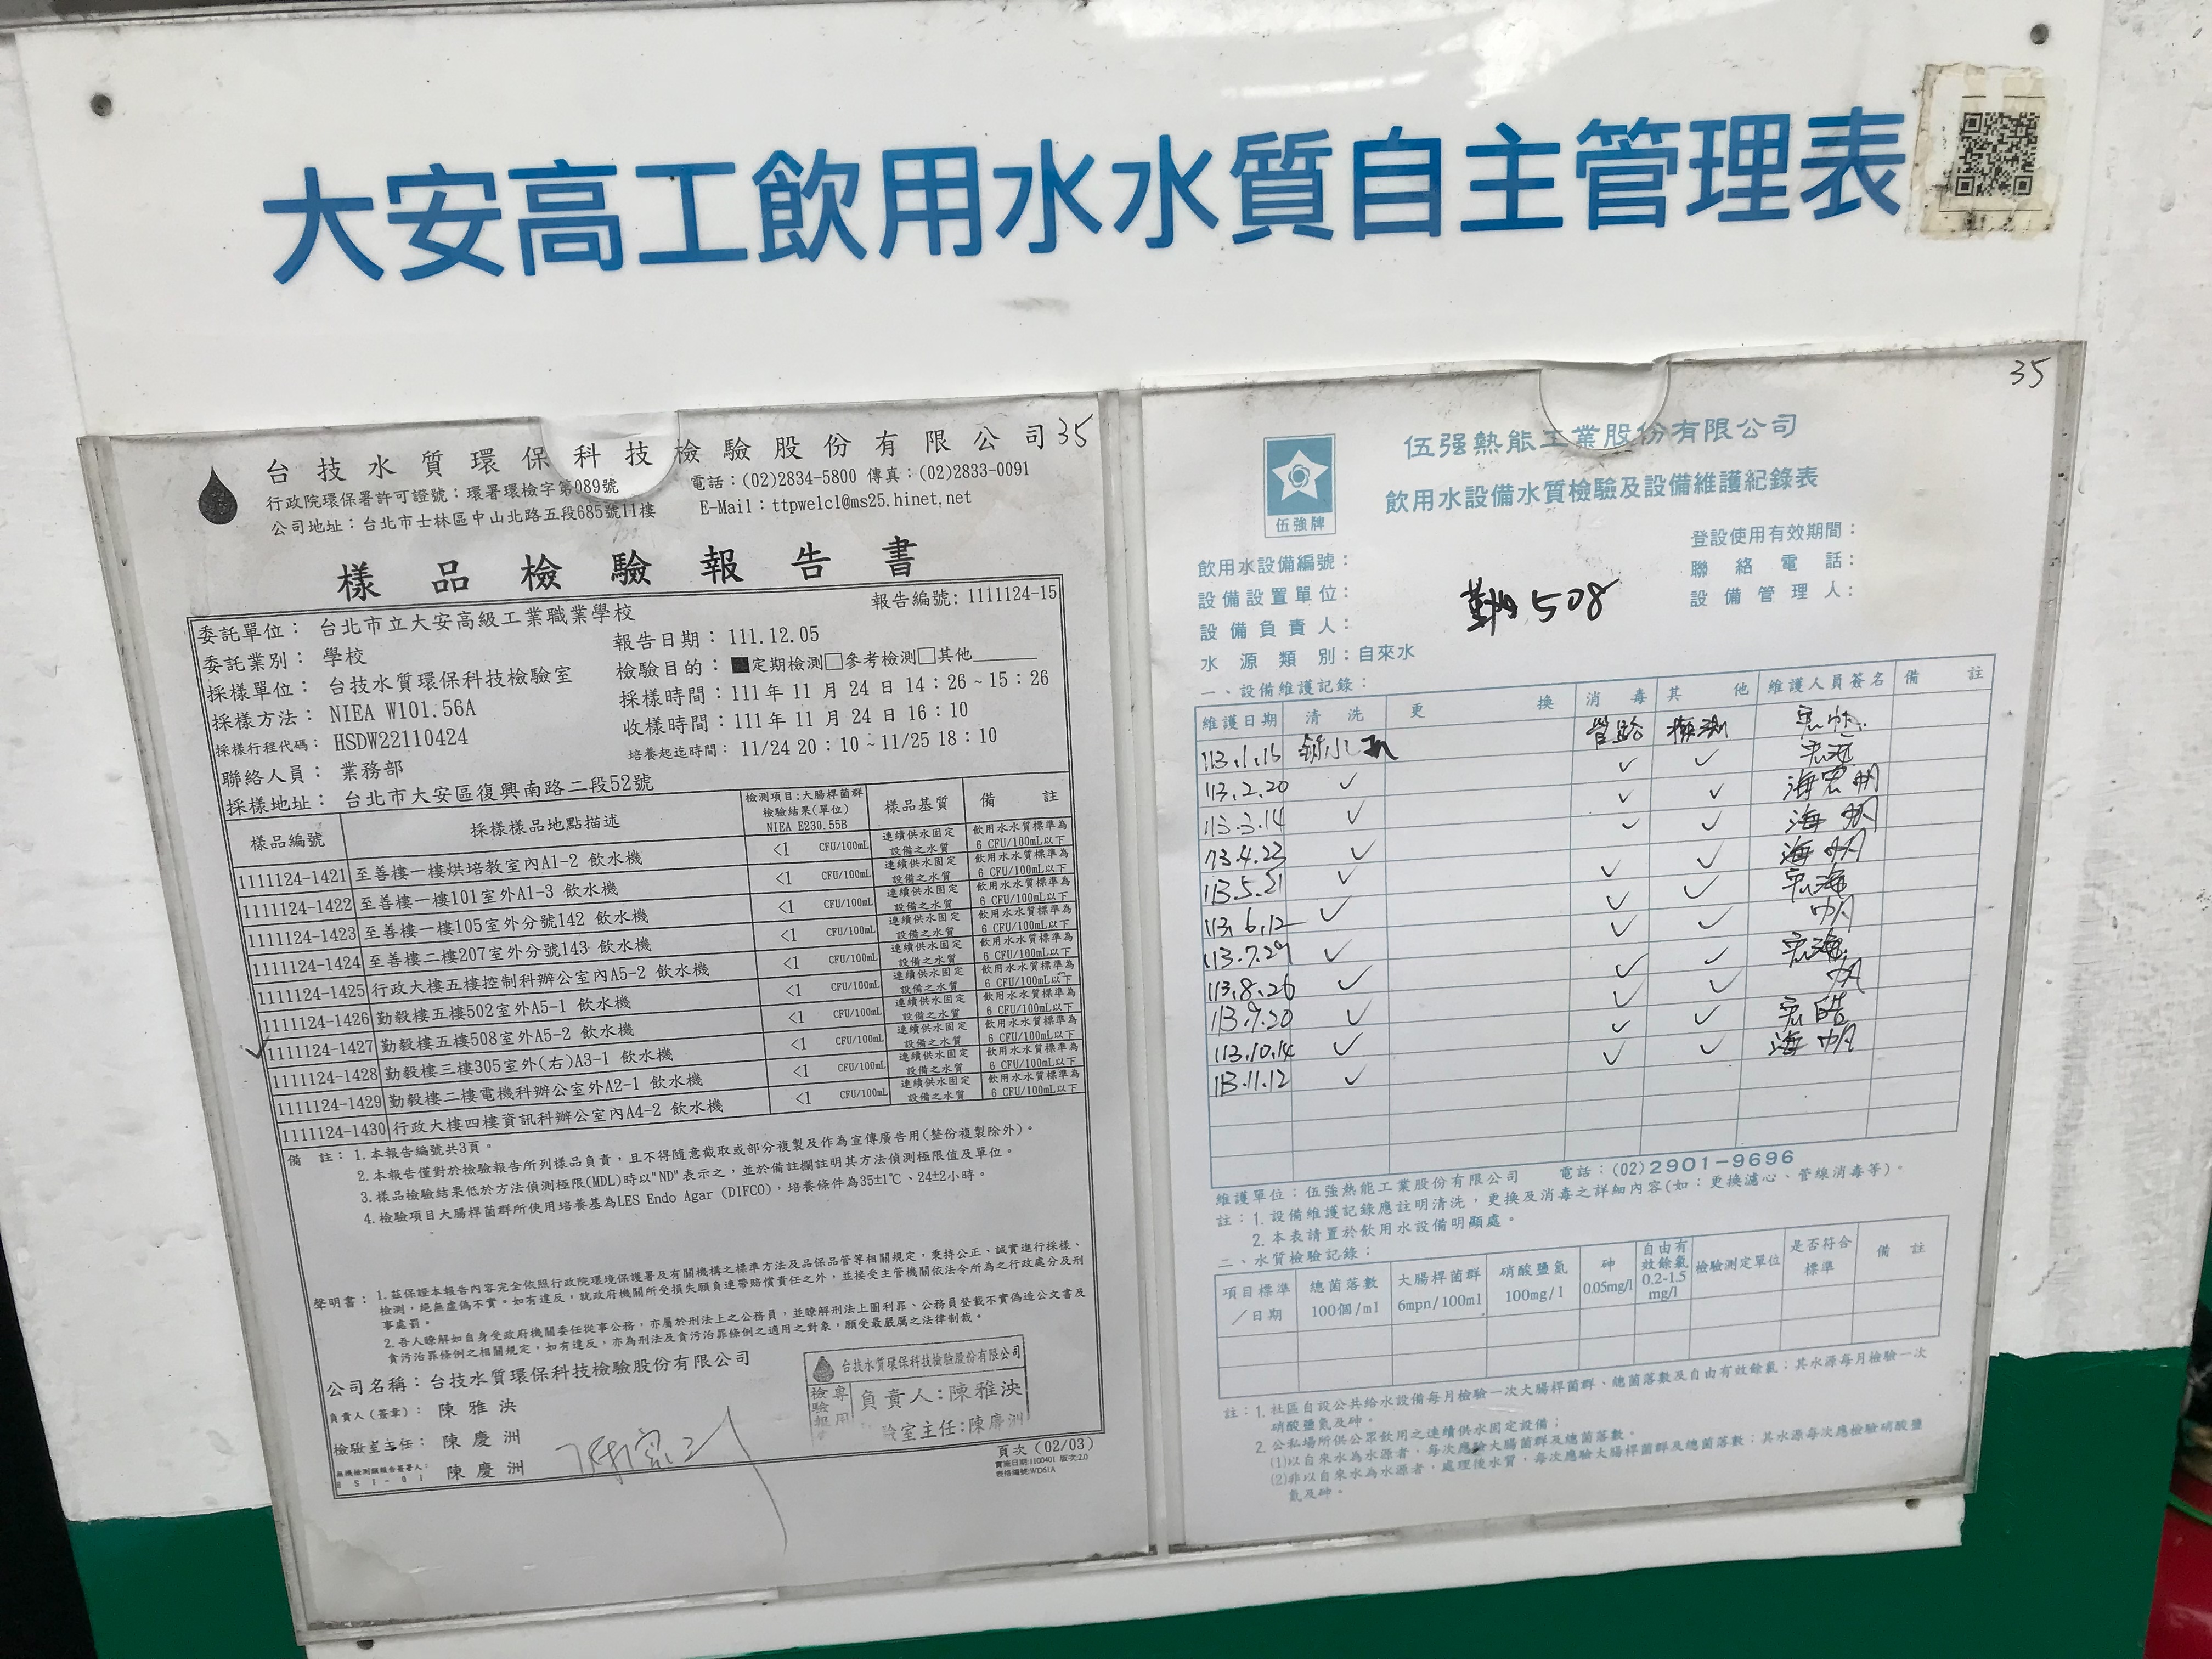 大安高工飲用水水質自主管理表
35
台技水質環保科技檢驗股份有限公司
行政院環保署許可證號：環署環檢字第089號
電話：(02)2834-5800 傳真：(02)2833-0091
公司地址：台北市士林區中山北路五段685號11樓
E-Mail：ttpwelcl@ms25.hinet.net
樣品檢驗報告書
報告編號：1111124-15
委託單位： 台北市立大安高級工業職業學校
委託業別： 學校
報告日期：111.12.05
採樣單位： 台技水質環保科技檢驗室
檢驗目的：■定期檢測□參考檢測□其他
採樣方法： NIEA W101.56A
採樣時間：111年 11 月 24 日 14：26～15：26
採樣行程代碼： HSDW22110424
收樣時間：111年 11 月 24 日 16：10
聯絡人員： 業務部
培養起迄時間： 11/24 20：10～11/25 18：10
採樣地址： 台北市大安區復興南路二段52號
樣品編號 採樣樣品地點描述 檢測項目:大腸桿菌群 檢驗結果(單位) NIEA E230.55B 樣品基質 備 註
1111124-1421 至善樓一樓烘培教室內A1-2 飲水機 <1 CFU/100mL 連續供水固定設備之水質 飲用水水質標準為6 CFU/100mL以下
1111124-1422 至善樓一樓101室外A1-3 飲水機 <1 CFU/100mL 連續供水固定設備之水質 飲用水水質標準為6 CFU/100mL以下
1111124-1423 至善樓一樓105室外分號142 飲水機 <1 CFU/100mL 連續供水固定設備之水質 飲用水水質標準為6 CFU/100mL以下
1111124-1424 至善樓二樓207室外分號143 飲水機 <1 CFU/100mL 連續供水固定設備之水質 飲用水水質標準為6 CFU/100mL以下
1111124-1425 行政大樓五樓控制科辦公室內A5-2 飲水機 <1 CFU/100mL 連續供水固定設備之水質 飲用水水質標準為6 CFU/100mL以下
1111124-1426 勤毅樓五樓502室外A5-1 飲水機 <1 CFU/100mL 連續供水固定設備之水質 飲用水水質標準為6 CFU/100mL以下
✓ 1111124-1427 勤毅樓五樓508室外A5-2 飲水機 <1 CFU/100mL 連續供水固定設備之水質 飲用水水質標準為6 CFU/100mL以下
1111124-1428 勤毅樓三樓305室外(右)A3-1 飲水機 <1 CFU/100mL 連續供水固定設備之水質 飲用水水質標準為6 CFU/100mL以下
1111124-1429 勤毅樓二樓電機科辦公室外A2-1 飲水機 <1 CFU/100mL 連續供水固定設備之水質 飲用水水質標準為6 CFU/100mL以下
1111124-1430 行政大樓四樓資訊科辦公室內A4-2 飲水機 <1 CFU/100mL 連續供水固定設備之水質 飲用水水質標準為6 CFU/100mL以下
備 註：1.本報告編號共3頁。
2.本報告僅對於檢驗報告所列樣品負責，且不得隨意截取或部分複製及作為宣傳廣告用(整份複製除外)。
3.樣品檢驗結果低於方法偵測極限(MDL)時以"ND"表示之，並於備註欄註明其方法偵測極限值及單位。
4.檢驗項目大腸桿菌群所使用培養基為LES Endo Agar (DIFCO)，培養條件為35±1℃、24±2小時。
聲明書：1.茲保證本報告內容完全依照行政院環境保護署及有關機構之標準方法及品保品管等相關規定，秉持公正、誠實進行採樣、
檢測，絕無虛偽不實。如有違反，就政府機關所受損失願負連帶賠償責任之外，並接受主管機關依法令所為之行政處分及刑
事處罰。
2.吾人瞭解如自身受政府機關委任從事公務，亦屬於刑法上之公務員，並瞭解刑法上圖利罪、公務員登載不實偽造公文書及
貪污治罪條例之相關規定，如有違反，亦為刑法及貪污治罪條例之適用之對象，願受最嚴厲之法律制裁。
公司名稱：台技水質環保科技檢驗股份有限公司
負責人(簽章)： 陳雅泱
檢驗室主任： 陳慶洲
無機檢測類報告簽署人： 陳慶洲
HSI-01
台技水質環保科技檢驗股份有限公司
檢驗報 專用
負責人:陳雅泱
驗室主任:陳慶洲
頁次(02/03)
實施日期:1100401 版次:2.0
表格編號:WD61A
35
伍強熱能工業股份有限公司
伍強牌
飲用水設備水質檢驗及設備維護紀錄表
登設使用有效期間：
飲用水設備編號：
聯絡電話：
設備設置單位：
勤508
設備管理人：
設備負責人：
水源類別：自來水
一、設備維護記錄：
維護日期 清洗 更換 消毒 其他 維護人員簽名 備註
113.1.16 管路 檢測
113.2.20 ✓ ✓ ✓
113.3.14 ✓ ✓ ✓
113.4.23 ✓ ✓ ✓
113.5.21 ✓ ✓ ✓
113.6.12 ✓ ✓ ✓
113.7.29 ✓ ✓ ✓
113.8.26 ✓ ✓ ✓
113.9.20 ✓ ✓ ✓
113.10.14 ✓ ✓ ✓
113.11.12 ✓ ✓ ✓
維護單位：伍強熱能工業股份有限公司 電話：(02)2901-9696
註：1.設備維護記錄應註明清洗，更換及消毒之詳細內容(如：更換濾心、管線消毒等)。
2.本表請置於飲用水設備明顯處。
二、水質檢驗記錄：
項目標準／日期 總菌落數 100個/ml 大腸桿菌群 6mpn/100ml 硝酸鹽氮 100mg/l 砷 0.05mg/l 自由有效餘氯 0.2-1.5 mg/l 檢驗測定單位 是否符合標準 備註
註：1.社區自設公共給水設備每月檢驗一次大腸桿菌群、總菌落數及自由有效餘氯；其水源每月檢驗一次
硝酸鹽氮及砷。
2.公私場所供公眾飲用之連續供水固定設備；
(1)以自來水為水源者，每次應驗大腸菌群及總菌落數。
(2)非以自來水為水源者，處理後水質，每次應驗大腸桿菌群及總菌落數；其水源每次應檢驗硝酸鹽
氮及砷。